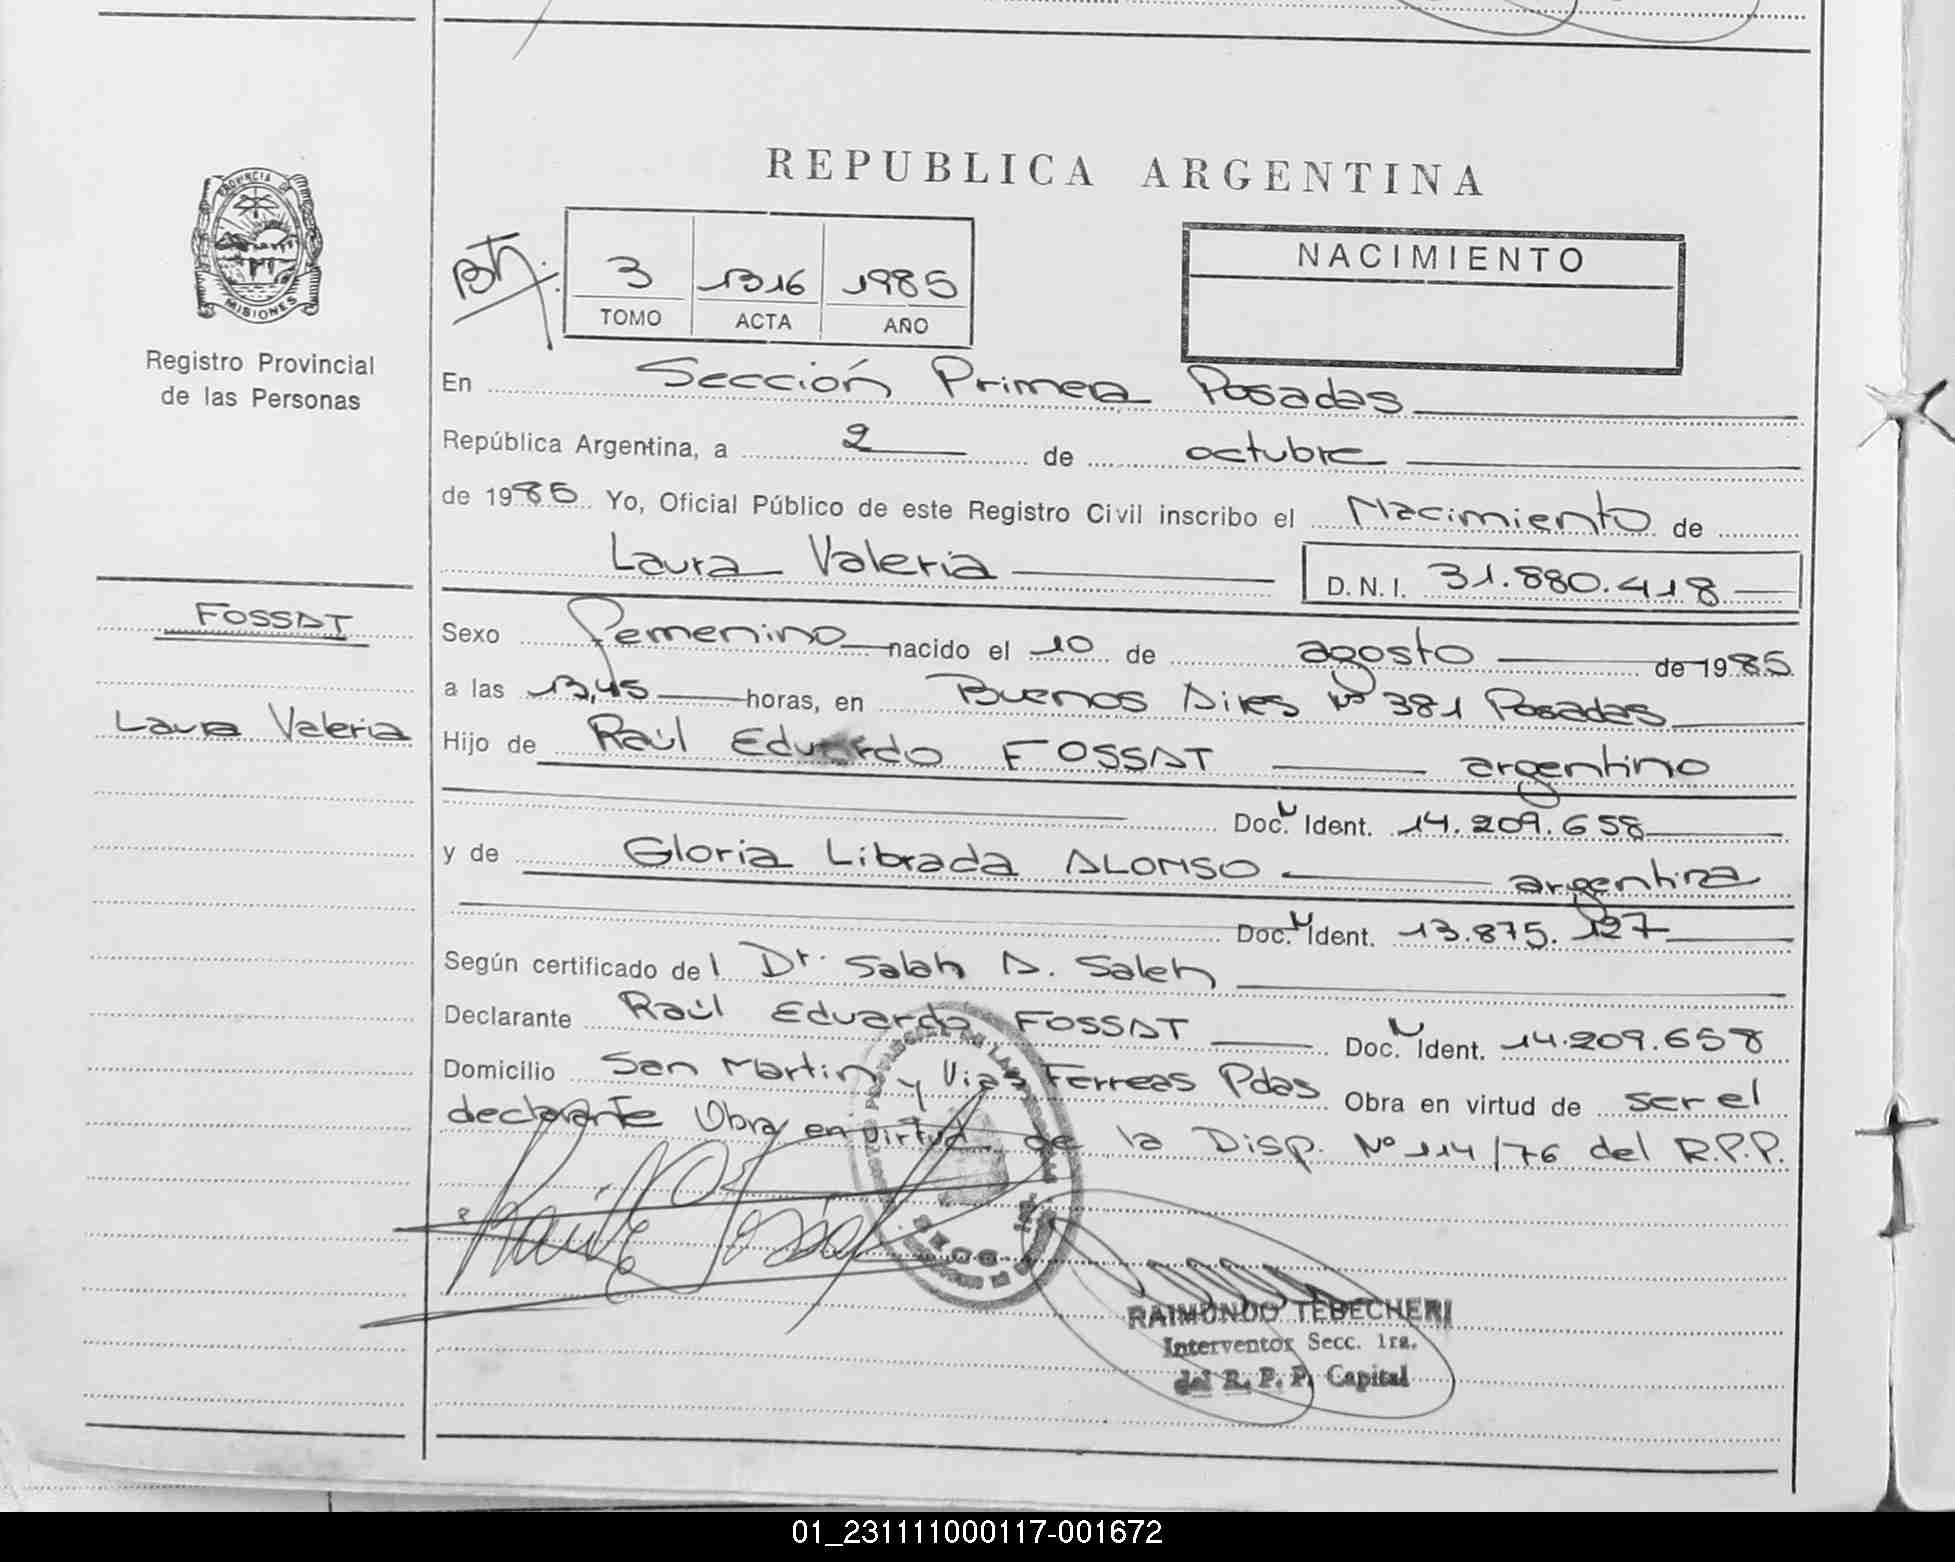 REPUBLICA ARGENTINA
PROVINCIA DE
MISIONES
Registro Provincial
de las Personas
3 1316 1985
TOMO ACTA AÑO
NACIMIENTO
En Sección Primera Posadas
República Argentina, a 2 de octubre
de 1985 Yo, Oficial Público de este Registro Civil inscribo el Nacimiento de
Laura Valeria D.N.I. 31.880.418
FOSSAT
Sexo Femenino nacido el 10 de agosto de 1985
a las 13,45 horas, en Buenos Aires Nº 381 Posadas
Laura Valeria
Hijo de Raúl Eduardo FOSSAT argentino
Doc. N Ident. 14.209.658
y de Gloria Librada ALONSO argentina
Doc. N Ident. 13.875.127
Según certificado del Dr. Salah A. Saleh
Declarante Raúl Eduardo FOSSAT Doc. N Ident. 14.209.658
Domicilio San Martin y Vias Ferreas Pdas Obra en virtud de ser el
declarante Obra en virtud de la Disp. Nº 114/76 del R.P.P.
RAIMUNDO TEBECHERI
Interventor Secc. 1ra.
del R. P. P. Capital
01_231111000117-001672